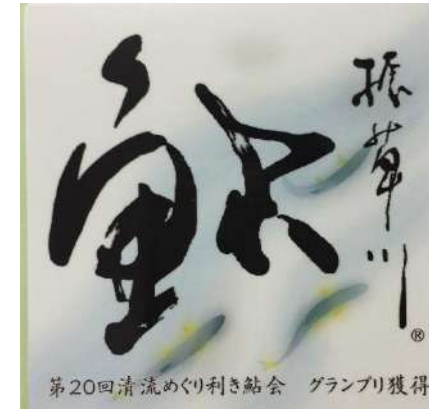 鮎
振草川
®
第20回清流めぐり利き鮎会 グランプリ獲得